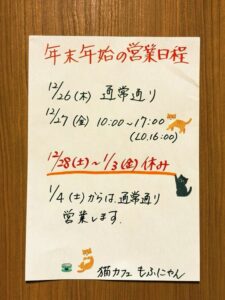 年末年始の営業日程
12/26(木) 通常通り
12/27(金) 10:00~17:00
(LO.16:00)
12/28(土)~1/3(金)休み
1/4(土)からは通常通り
営業します.
猫カフェ もふにゃん